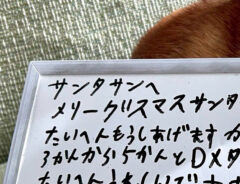 サンタサンへ
メリークリスマスサンタ
たいへんもうしあげます か
3かんから5かんとDXメタ